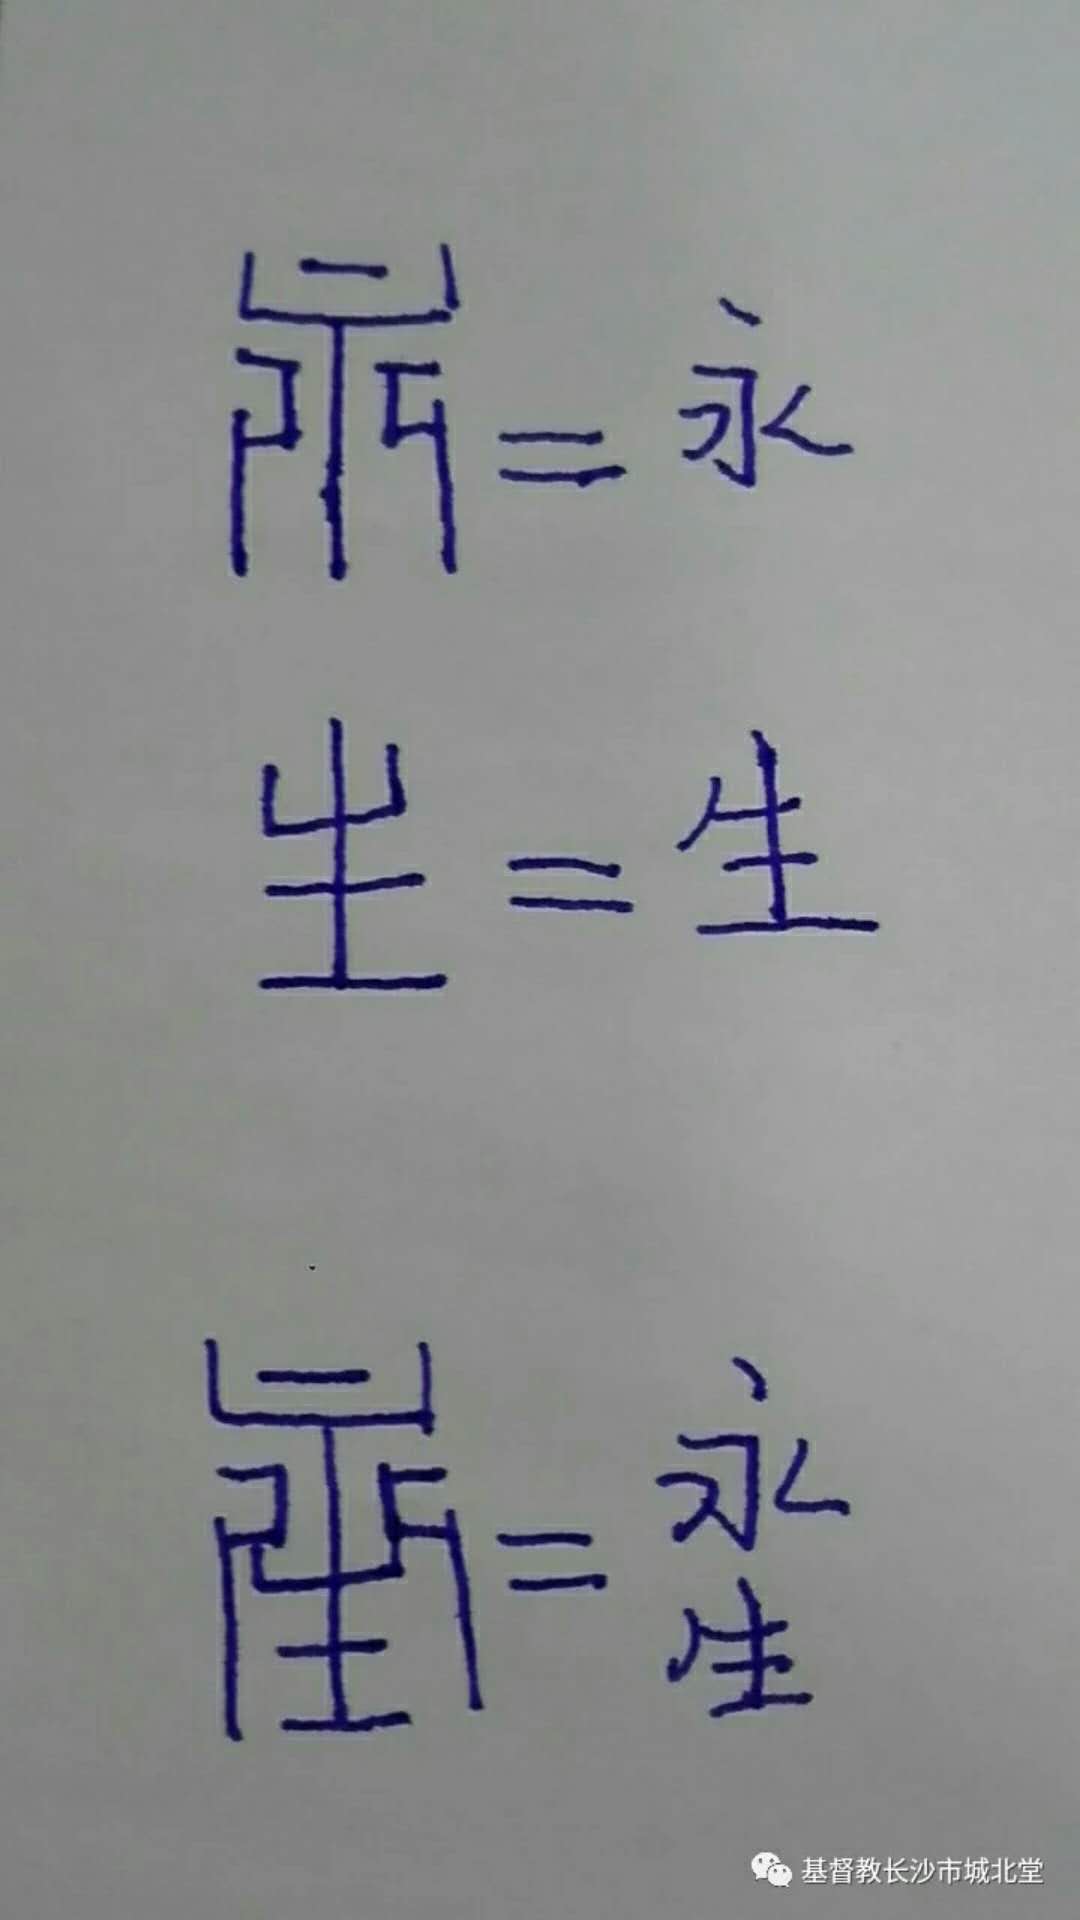 = 永
生 = 生
= 永
生
基督教长沙市城北堂